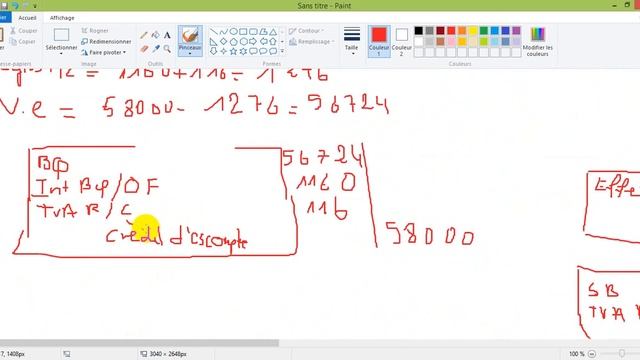 Sans titre - Paint
Accueil
Affichage
Sélectionner
Rogner
Redimensionner
Faire pivoter
Image
Outils
Pinceaux
Formes
Contour
Remplissage
Taille
Couleur 1
Couleur 2
Couleurs
Modifier les couleurs
= 1160 + 116 = 1276
V.e = 58000 - 1276 = 56724
Bq 56724
Int Bq / OF 1160
TVA R / C 116
Crédit d'escompte 58000
Effe
SB
TVA R
7, 1408px
3040 × 2648px
100 %